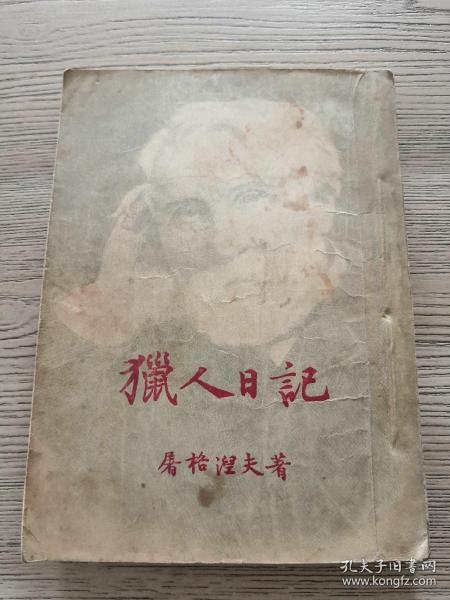 獵人日記
屠格涅夫著
孔夫子旧书网
www.kongfz.com